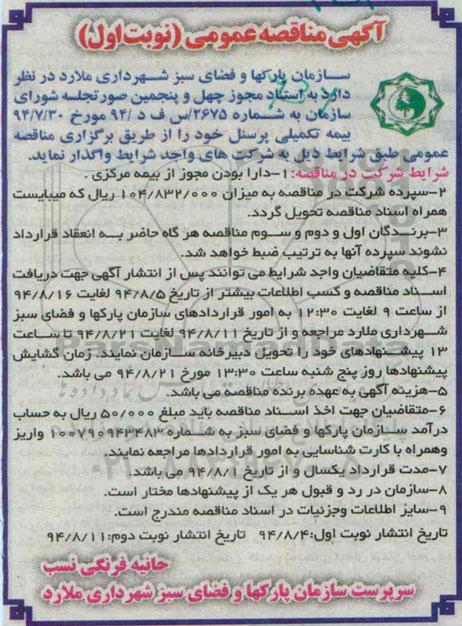 آگهی مناقصه عمومی (نوبت اول)
سـازمان پارکها و فضای سبز شـهرداری ملارد در نظر
دارد به استناد مجوز چهل و پنجمین صورتجلسه شورای
سازمان به شـماره ۲۶۷۵/س ف د /۹۴ مورخ ۹۴/۷/۳۰
بیمه تکمیلی پرسنل خود را از طریق برگزاری مناقصه
عمومی طبق شرایط ذیل به شرکت های واجد شرایط واگذار نماید.
شرایط شرکت در مناقصه: ۱-دارا بودن مجوز از بیمه مرکزی.
۲-سپرده شرکت در مناقصه به میزان ۱۰۴/۸۳۲/۰۰۰ ریال که میبایست
همراه اسناد مناقصه تحویل گردد.
۳-برنـدگان اول و دوم و سـوم مناقصه هر گاه حاضر بـه انعقاد قرارداد
نشوند سپرده آنها به ترتیب ضبط خواهد شد.
۴-کلیه متقاضیان واجد شرایط می توانند پس از انتشار آگهی جهت دریافت
اسـناد مناقصه و کسب اطلاعات بیشتر از تاریخ ۹۴/۸/۵ لغایت ۹۴/۸/۱۶
از ساعت ۹ لغایت ۱۲:۳۰ به امور قراردادهای سازمان پارکها و فضای سبز
شهرداری ملارد مراجعه و از تاریخ ۹۴/۸/۱۱ لغایت ۹۴/۸/۲۱ تا ساعت
۱۳ پیشـنهادهای خود را تحویل دبیرخانه سـازمان نمایند. زمان گشایش
پیشنهادها روز پنج شنبه ساعت ۱۳:۳۰ مورخ ۹۴/۸/۲۱ می باشد.
۵-هزینه آگهی به عهده برنده مناقصه می باشد.
۶-متقاضیان جهت اخذ اسـناد مناقصه باید مبلغ ۵۰/۰۰۰ ریال به حساب
درآمد سـازمان پارکها و فضای سـبز به شماره ۱۰۰۷۹۰۹۴۳۴۸۳ واریز
وهمراه با کارت شناسایی به امور قراردادها مراجعه نمایند.
۷-مدت قرارداد یکسال و از تاریخ ۹۴/۸/۱ می باشد.
۸-سازمان در رد و قبول هر یک از پیشنهادها مختار است.
۹-سایر اطلاعات وجزئیات در اسناد مناقصه مندرج است.
تاریخ انتشار نوبت اول:۹۴/۸/۴ تاریخ انتشار نوبت دوم:۹۴/۸/۱۱
حانیه فرنگی نسب
سرپرست سازمان پارکها و فضای سبز شهرداری ملارد
ParsNamadData